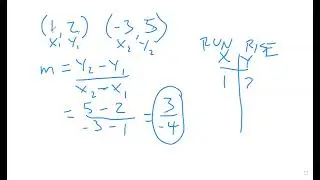 (1, 2) (-3, 5)
X₁ Y₁ X₂ Y₂
m = Y₂ - Y₁ / X₂ - X₁
= 5 - 2 / -3 - 1 = 3 / -4
RUN RISE
X Y
1 2